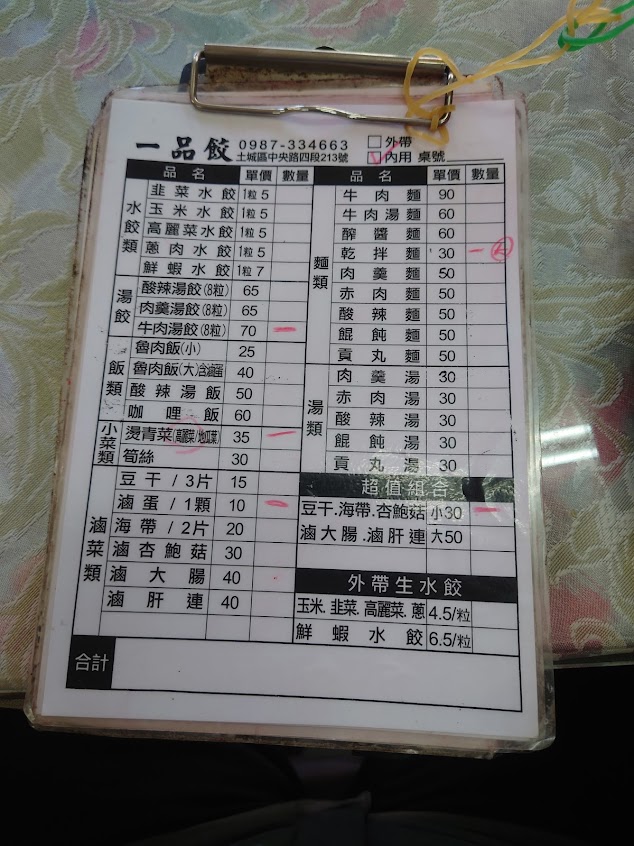 一品餃 0987-334663
土城區中央路四段213號
外帶
內用 桌號
品名 單價 數量
水餃類
韭菜水餃 1粒 5
玉米水餃 1粒 5
高麗菜水餃 1粒 5
蔥肉水餃 1粒 5
鮮蝦水餃 1粒 7
湯餃
酸辣湯餃(8粒) 65
肉羹湯餃(8粒) 65
牛肉湯餃(8粒) 70 一
飯類
魯肉飯(小) 25
魯肉飯(大)含滷蛋 40
酸辣湯飯 50
咖哩飯 60
小菜類
燙青菜(高麗菜/地瓜菜) 35 一
筍絲 30
滷菜類
豆干/3片 15
滷蛋/1顆 10 一
海帶/2片 20
滷杏鮑菇 30
滷大腸 40
滷肝連 40
合計
品名 單價 數量
麵類
牛肉麵 90
牛肉湯麵 60
醡醬麵 60
乾拌麵 30 一
肉羹麵 50
赤肉麵 50
酸辣麵 50
餛飩麵 50
貢丸麵 50
湯類
肉羹湯 30
赤肉湯 30
酸辣湯 30
餛飩湯 30
貢丸湯 30
超值組合
豆干.海帶.杏鮑菇 小30 一
滷大腸.滷肝連 大50
外帶生水餃
玉米.韭菜.高麗菜.蔥 4.5/粒
鮮蝦水餃 6.5/粒